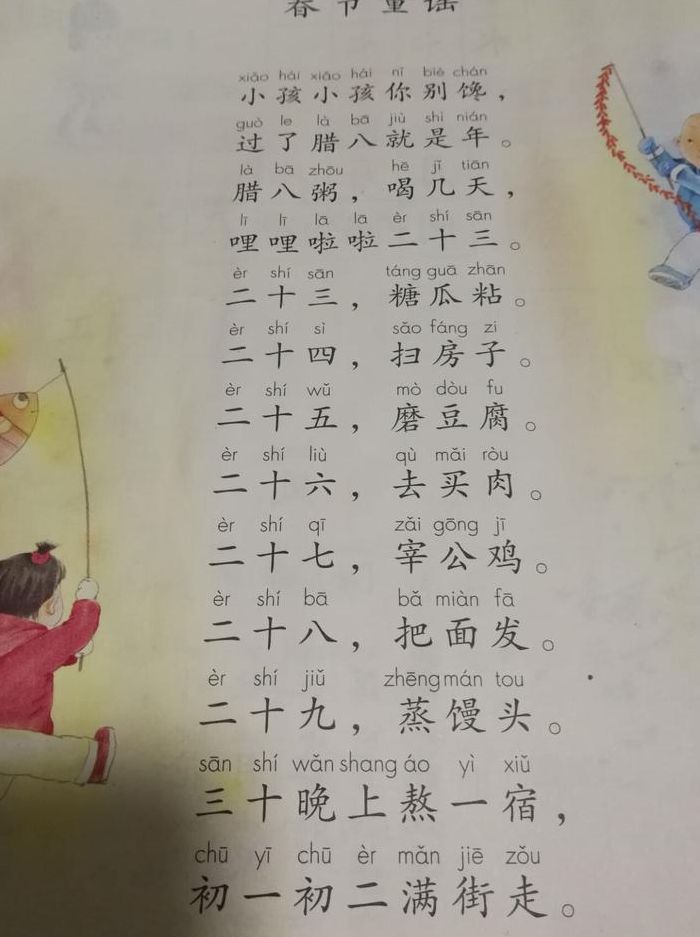 春节童谣
xiǎo hái xiǎo hái nǐ bié chán
小孩小孩你别馋，
guò le là bā jiù shì nián
过了腊八就是年。
là bā zhōu hē jǐ tiān
腊八粥，喝几天，
lī lī lā lā èr shí sān
哩哩啦啦二十三。
èr shí sān táng guā zhān
二十三，糖瓜粘。
èr shí sì sǎo fáng zi
二十四，扫房子。
èr shí wǔ mò dòu fu
二十五，磨豆腐。
èr shí liù qù mǎi ròu
二十六，去买肉。
èr shí qī zǎi gōng jī
二十七，宰公鸡。
èr shí bā bǎ miàn fā
二十八，把面发。
èr shí jiǔ zhēng mán tou
二十九，蒸馒头。
sān shí wǎn shang áo yì xiǔ
三十晚上熬一宿，
chū yī chū èr mǎn jiē zǒu
初一初二满街走。